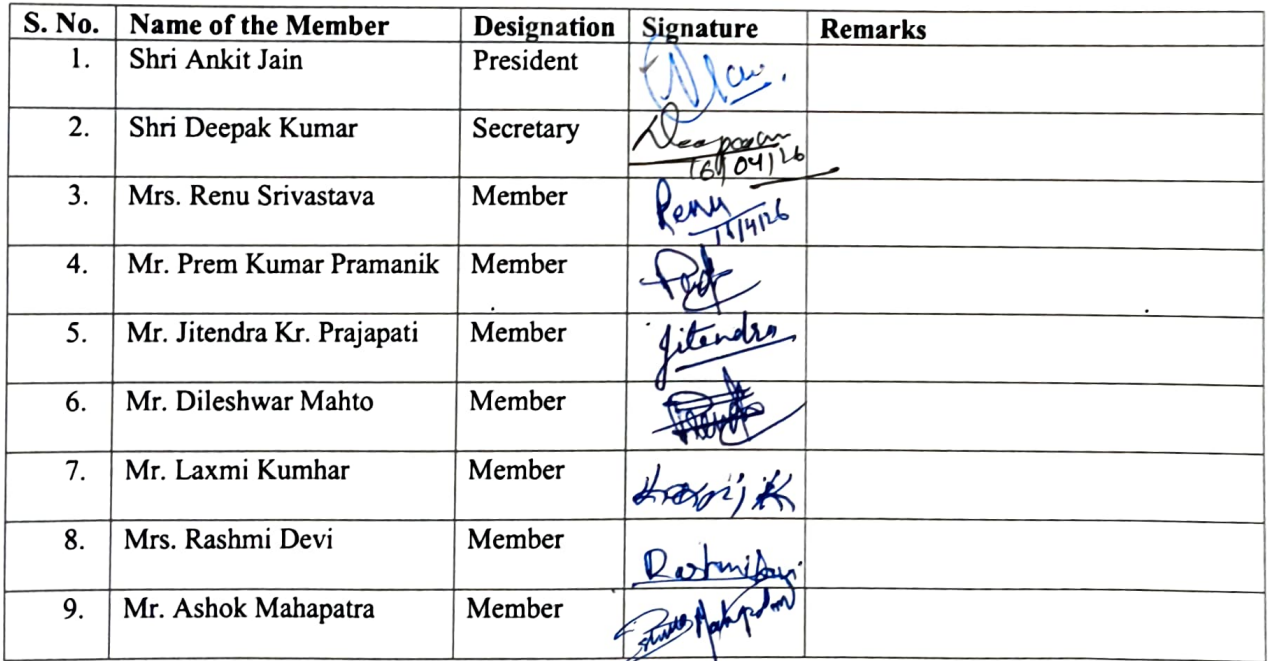 S. No. Name of the Member Designation Signature Remarks
1. Shri Ankit Jain President
2. Shri Deepak Kumar Secretary
16/04/26
3. Mrs. Renu Srivastava Member Renu
4. Mr. Prem Kumar Pramanik Member
5. Mr. Jitendra Kr. Prajapati Member Jitendra
6. Mr. Dileshwar Mahto Member
7. Mr. Laxmi Kumhar Member
8. Mrs. Rashmi Devi Member
9. Mr. Ashok Mahapatra Member